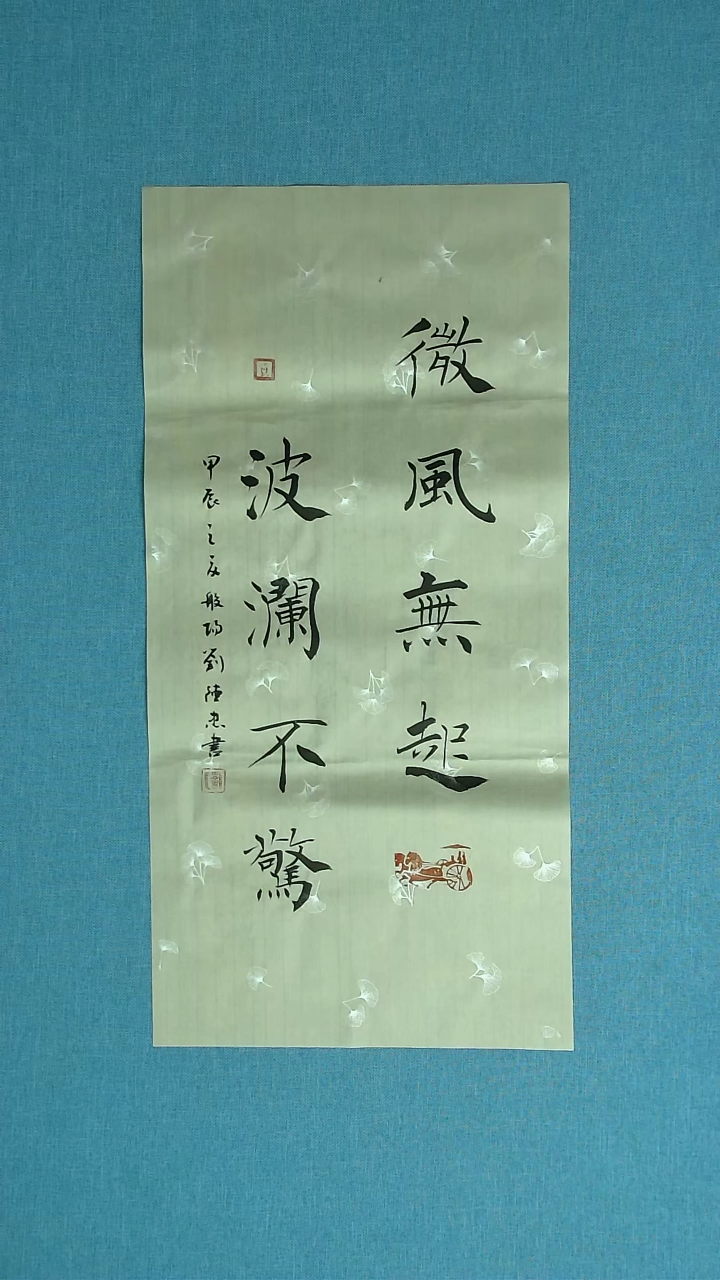 微風無起
波瀾不驚
甲辰之夏般陽劉德忠書